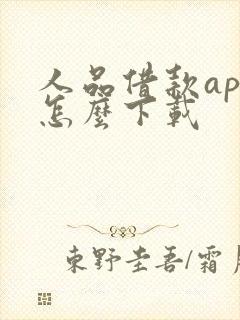 人品借款ap
怎麼下載
東野圭吾/霜月